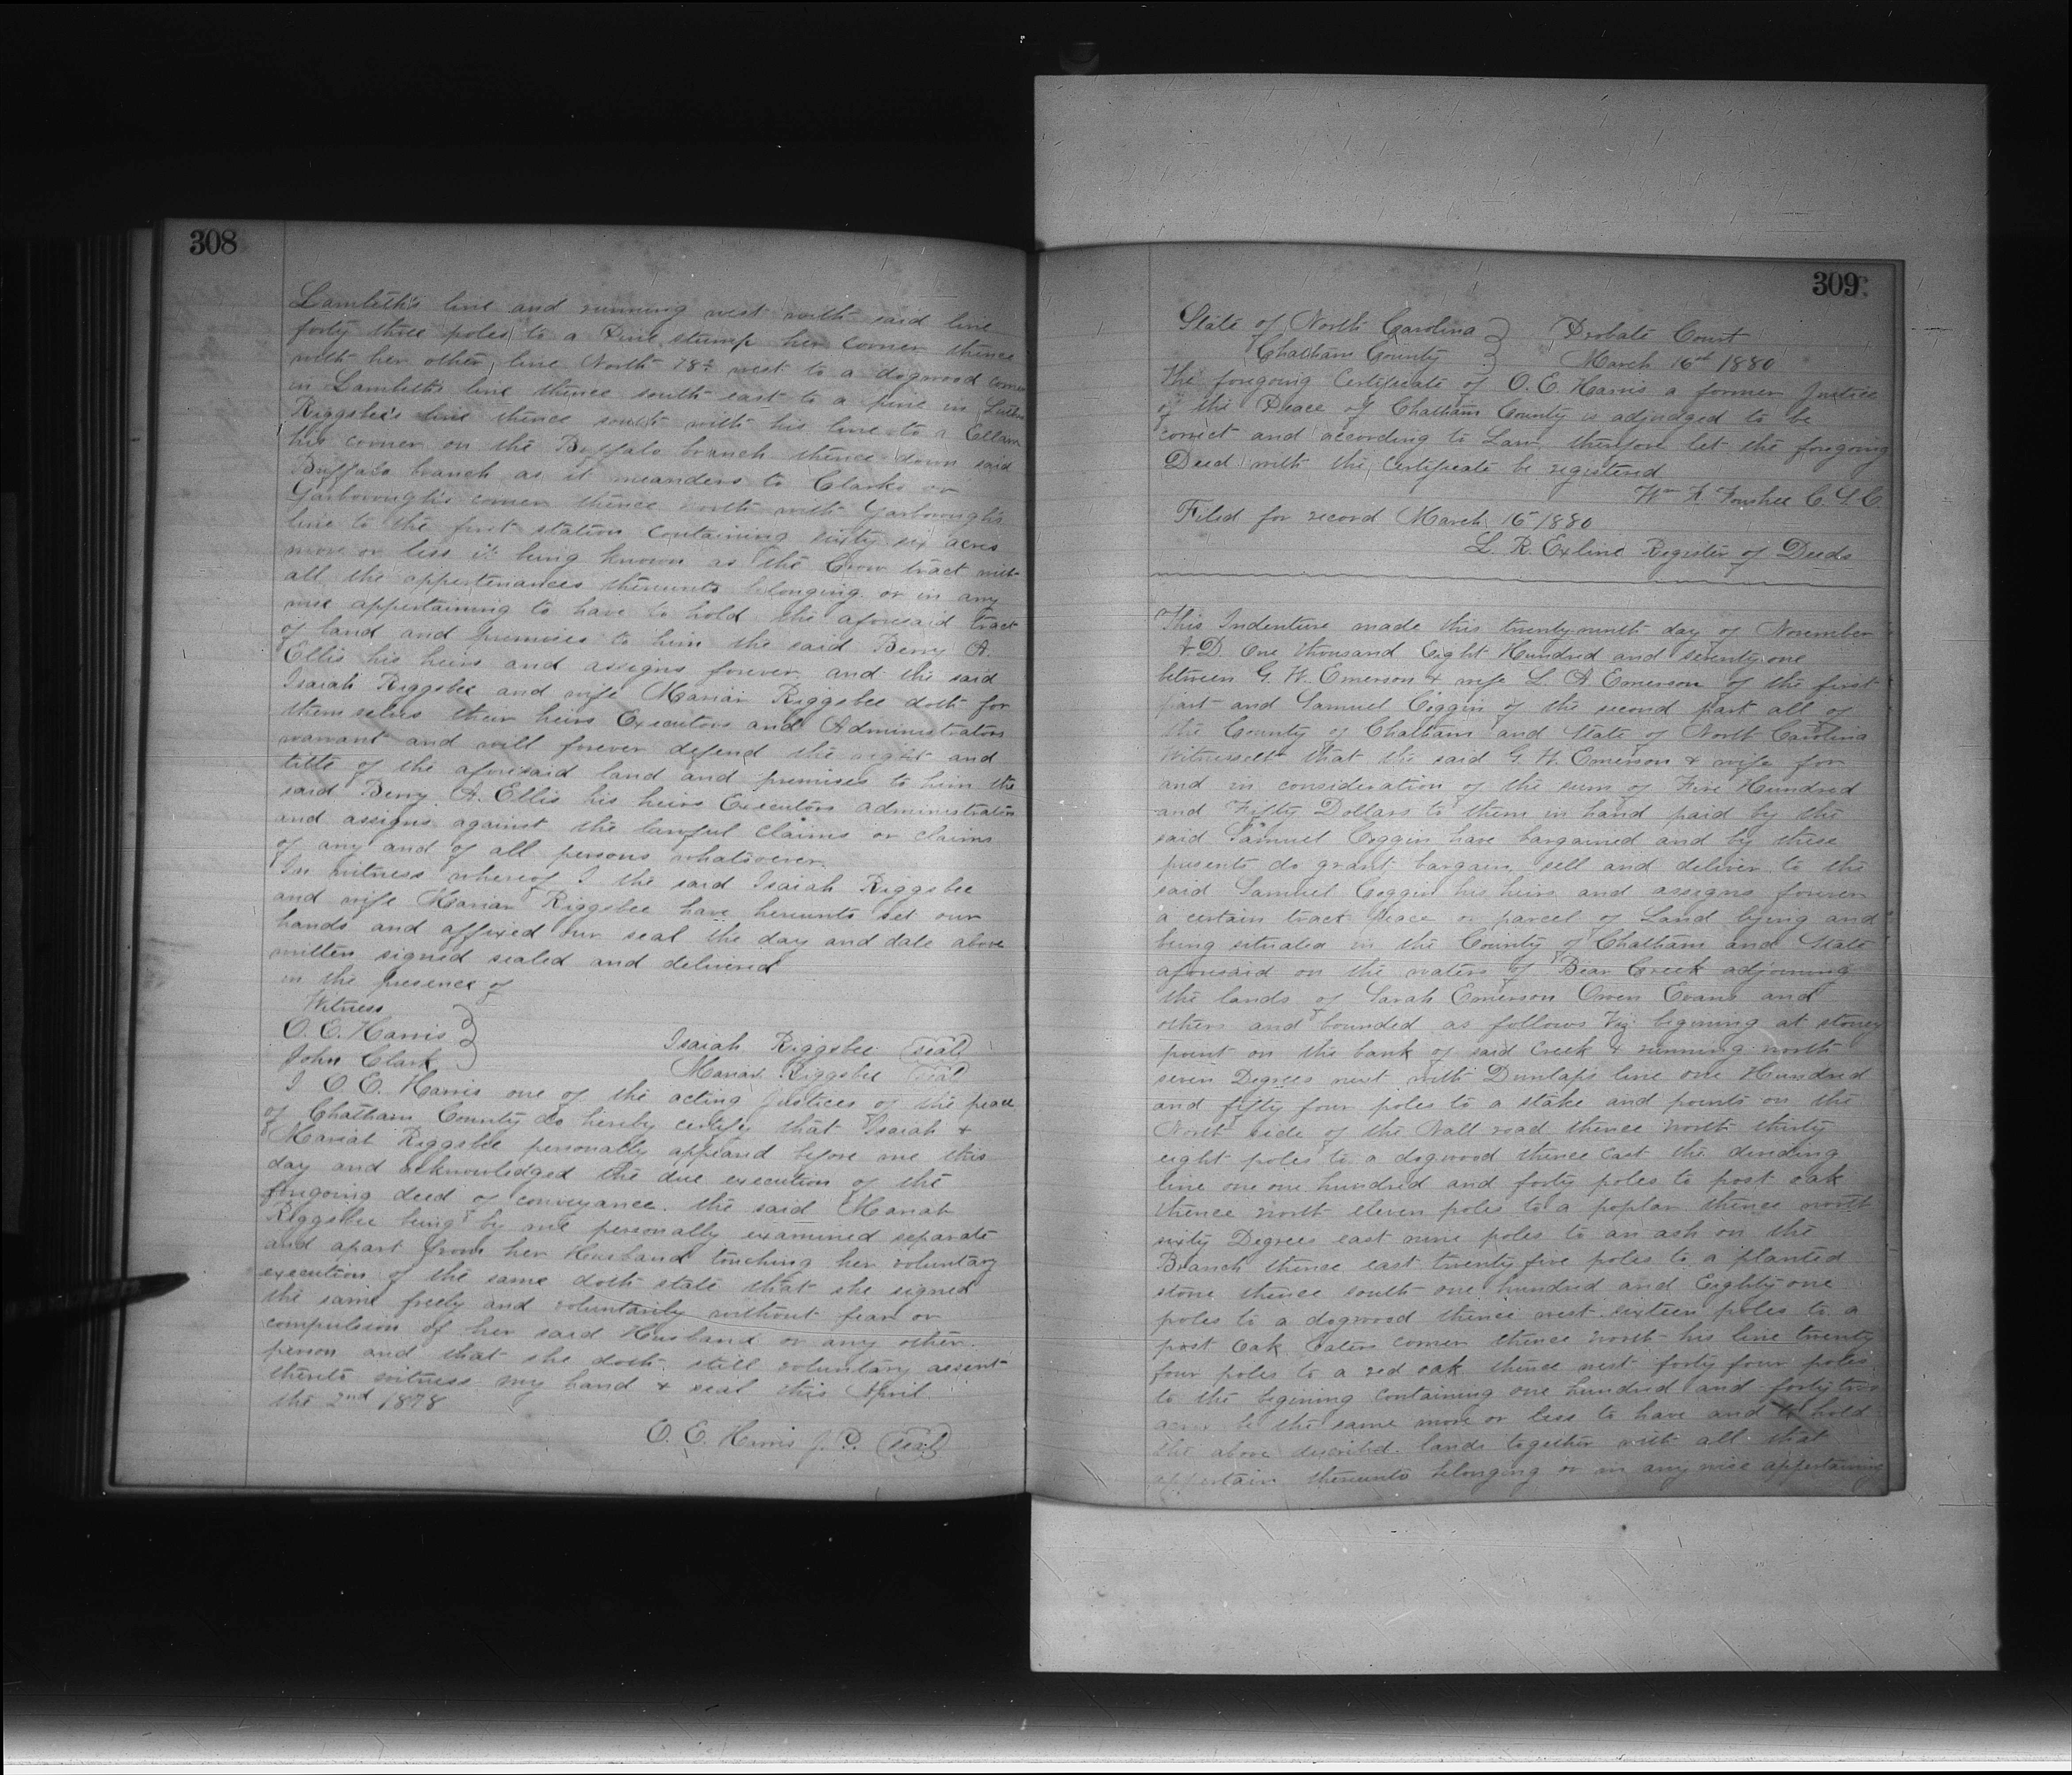 308
Lambeth's line and running west with said line
forty three poles to a Pine stump her corner thence
with her other line North 78½ west to a dogwood corner
in Lambeths line thence south east to a pine in
Riggsbee's line thence south with his line to a
his corner on the Buffalo branch thence down said
Buffalo branch as it meanders to Clarks or
Yarborough's corner thence north with Yarboroughs
line to the first station containing sixty six acres
more or less it being known as the Crow tract with
all the appertenances thereunto belonging or in any
wise appertaining to have to hold the aforesaid tract
of land and premises to him the said Berry A.
Ellis his heirs and assigns forever and the said
Isaiah Riggsbee and wife Mariah Riggsbee doth for
themselves their heirs Executors and Administrators
warrant and will forever defend the right and
title of the aforesaid land and premises to him the
said Berry A. Ellis his heirs Executors administrators
and assigns against the lawful claims or claims
of any and of all persons whatsoever.
In witness whereof I the said Isaiah Riggsbee
and wife Mariah Riggsbee have hereunto set our
hands and affixed our seal the day and date above
written signed sealed and delivered
in the presence of
Witness
O. E. Harris
John Clark
Isaiah Riggsbee (seal)
Mariah Riggsbee (seal)
I O. E. Harris one of the acting Justices of the peace
of Chatham County do hereby certify that Isaiah &
Mariah Riggsbee personally appeard before me this
day and acknowledged the due execution of the
forgoing deed of conveyance. the said Mariah
Riggsbee being by me personally examined separate
and apart from her Husband touching her voluntary
execution of the same doth state that she signed
the same freely and voluntarily without fear or
compulsion of her said Husband or any other
person and that she doth still voluntary assent
thereto witness my hand & seal this April
the 2nd 1878
O. E. Harris J. P. (seal)
309
State of North Carolina } Probate Court
Chatham County } March 16th 1880
The foregoing Certificate of O. E. Harris a former Justice
of the Peace of Chatham County is adjudged to be
correct and according to Law therefore let the foregoing
Deed with the Certificate be registered
Wm F. Foushee C. S. C.
Filed for record March 16 1880
L. R. Exline Register of Deeds
This Indenture made this twenty ninth day of November
A D One thousand Eight Hundred and seventy one
between G. W. Emerson & wife L. A Emerson of the first
part and Samuel Coggin of the second part all of
the County of Chatham and State of North Carolina
Witnesseth that the said G. W. Emerson & wife for
and in consideration of the sum of Five Hundred
and Fifty Dollars to them in hand paid by the
said Samuel Coggin have bargained and by these
presents do grant bargain sell and deliver to the
said Samuel Coggin his heirs and assigns forever
a certain tract peace or parcel of Land lying and
being situated in the County of Chatham and State
aforesaid on the waters of Bear Creek adjoining
the lands of Sarah Emerson Owen Evans and
others and bounded as follows Viz: begining at stoney
point on the bank of said Creek & running north
seven Degrees west with Dunlaps line one Hundred
and fifty four poles to a stake and points on the
North side of the Wall road thence north thirty
eight poles to a dogwood thence East the dividing
line one one hundred and forty poles to post oak
thence north eleven poles to a poplar thence north
sixty Degrees east nine poles to an ash on the
Branch thence east twenty five poles to a planted
stone thence south one hundred and Eighty one
poles to a dogwood thence west sixteen poles to a
post oak corner thence north his line twenty
four poles to a red oak thence west forty four poles
to the begining containing one hundred and forty two
acres be the same more or less to have and to hold
the above described lands together with all that
appertain thereunto belonging or in any wise appertaining